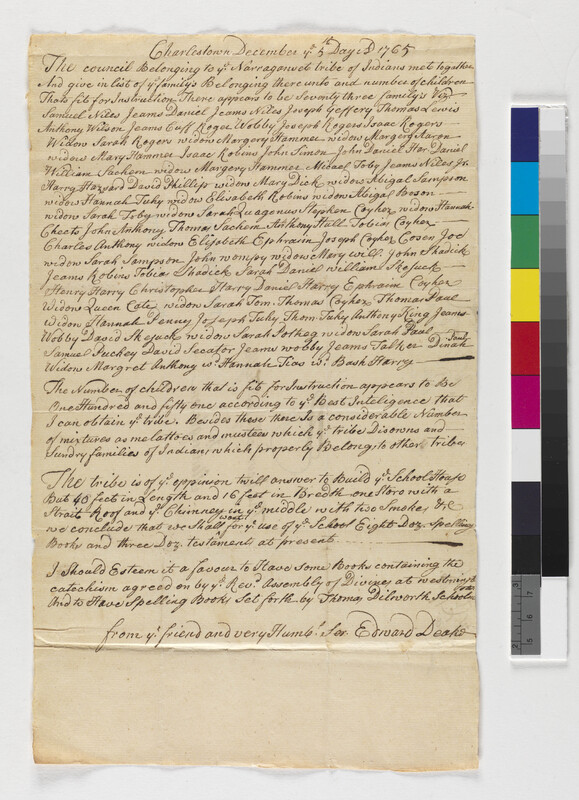 Charlestown December ye 5th Day AD 1765
The council Belonging to ye Narragonset tribe of Indians met together
And give in list of ye family's Belonging there unto and number of children
Thats fit for Instruction There appears to be Seventy three family's Viz
Samuel Niles Jeams Daniel Jeams Niles Joseph Jeffery Thomas Lewis
Anthony Wilson Jeams Cuff Roger Wobby Joseph Rogers Isaac Rogers
Widow Sarah Rogers widow Margery Hammer widow Margery Aaron
widow Mary Hammer Isaac Robins John Simon John Daniel Har Daniel
William Sachem widow Margery Hammer Micael Toby Jeams Niles Jr.
Harry Hazsard David Phillip widow Mary Dick widow Abigal Sampson
widow Hannah Tuhy widow Elisabeth Robins widow Abigal Beson
widow Sarah Toby widow Sarah Quagonus Stephen Coyhez widow Hannah
Cheets John Anthony Thomas Sachem Anthony Hull Tobias Coyhez
Charles Anthony widow Elisobeth Ephraim Joseph Coyhez Cosen Joe
widow Sarah Sampson John Wompy widow Mary will John Shadick
Jeams Robins Tobias Shadick Sarah Daniel William Skesuck
Henry Harry Christopher Harry Daniel Harry Ephraim Coyhez
Widow Queen Cate widow Sarah Tom Thomas Coyhez Thomas Paul
Widow Hannah Penny Joseph Tuhy Thom Tuhy Anthony King Jeams
Wobby David Skesuck widow Sarah Potheg widow Sarah Paul
Samuel Puckey David Secator Jeams wobby Jeams Talker Dinah Paul
Widow Margret Anthony w. Hannah Tias wi. Bash Harry
The Number of children that is fit for Instruction appears to Be
One Hundred and fifty one according to ye Best Inteligence that
I can obtain ye tribe. Besides these there Is a considerable Number
of mixtures as melattoes and mustees which ye tribe Disowns and
Sundry families of Indians which properly Belongs to other Tribes
The tribe is of ye oppinion twill answer to Build ye School House
But 40 feet in Length and 16 feet in Bredth one Store with a
Strait Roof and ye Chimney in ye middle with two Smokes &c
we conclude that we Shall want for ye use of ye School Eight Doz. Spelling
Books and three Doz. testament at present
I Should Esteem it a favour to Have Some Books containing the
catechism agreed on by ye Revd. Assembly of Divines at westminster
And to Have Spelling Books Set forth by Thomas Dilworth
from ye friend and very Humbl. Ser. Edward Deake